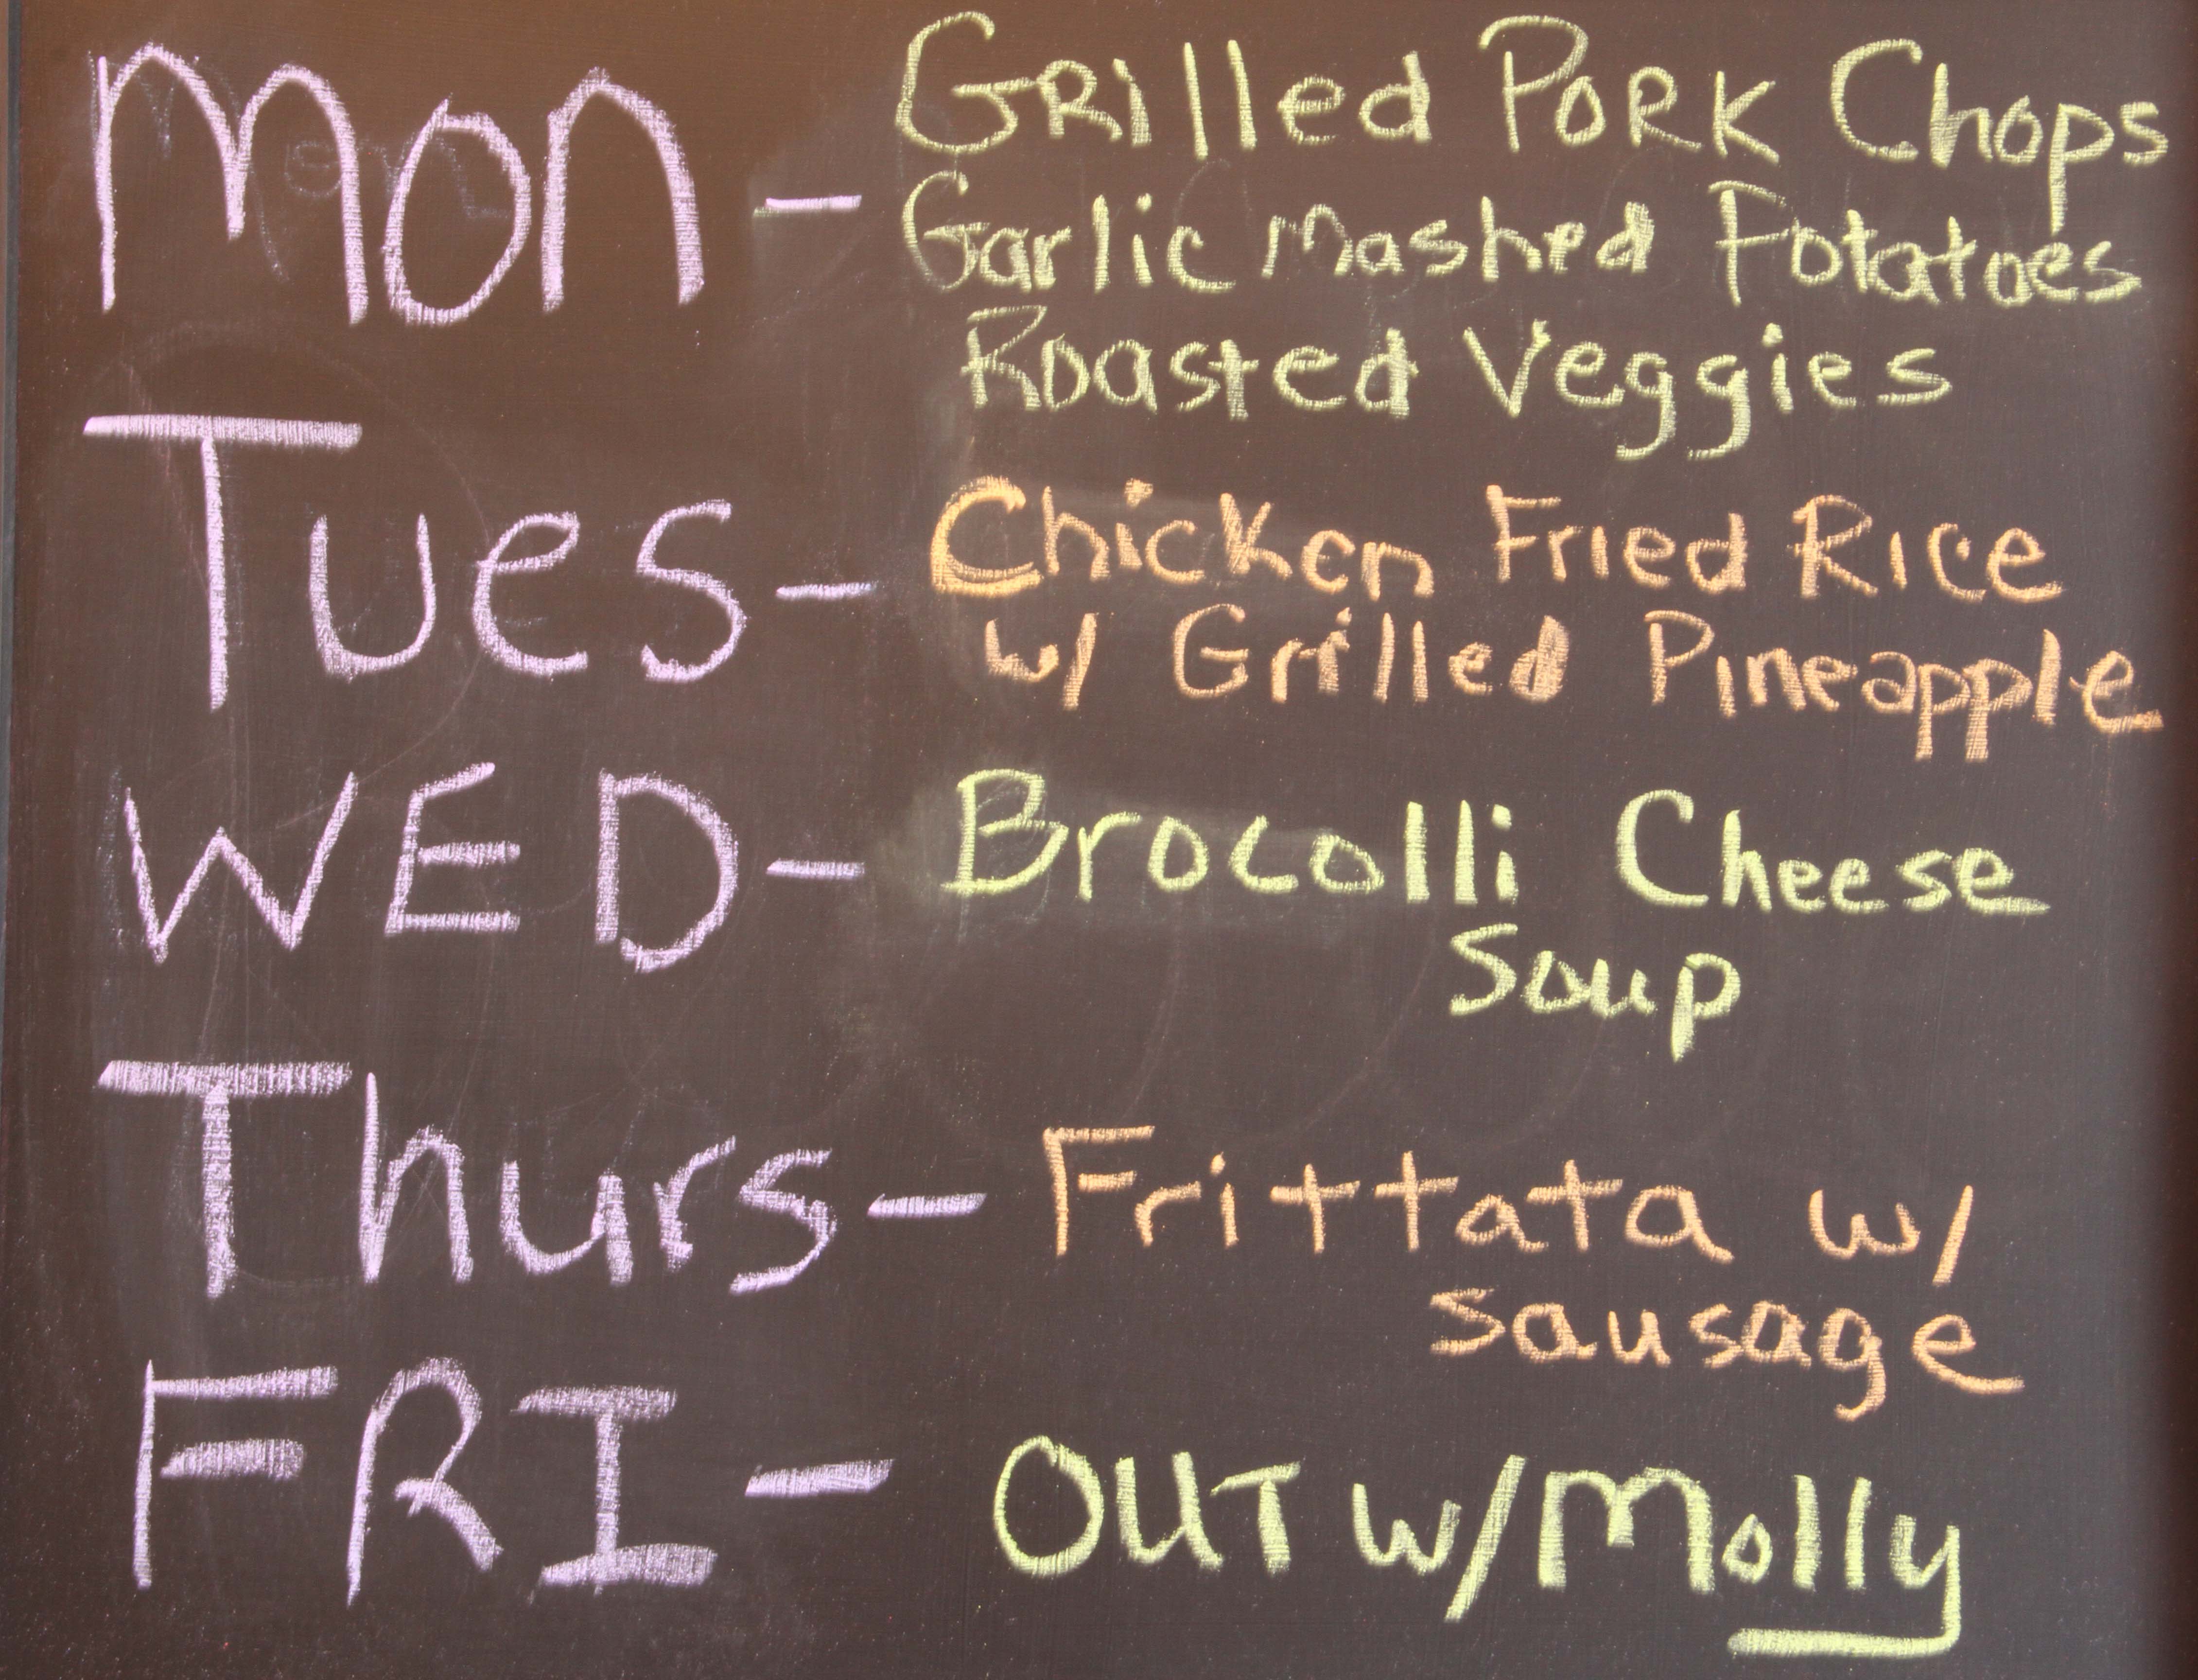 Mon - Grilled Pork Chops
Garlic Mashed Potatoes
Roasted Veggies
Tues - Chicken Fried Rice
w/ Grilled Pineapple
WED - Brocolli Cheese
Soup
Thurs - Frittata w/
sausage
FRI - OUT w/ Molly